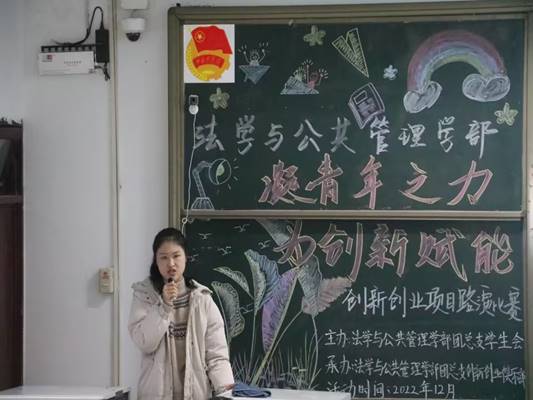 法学与公共管理学部
凝青年之力
为创新赋能
创新创业项目路演比赛
主办:法学与公共管理学部团总支学生会
承办:法学与公共管理学部团总支创新创业俱乐部
活动时间:2022年12月